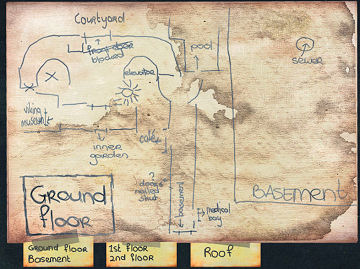 Courtyard
front door
blocked
pool
elevator
sewer
viking
museum
inner
garden
café
doors
nailed
shut
basement
medical
bay
BASEMENT
GROUND
floor
Ground floor
Basement
1st floor
2nd floor
Roof